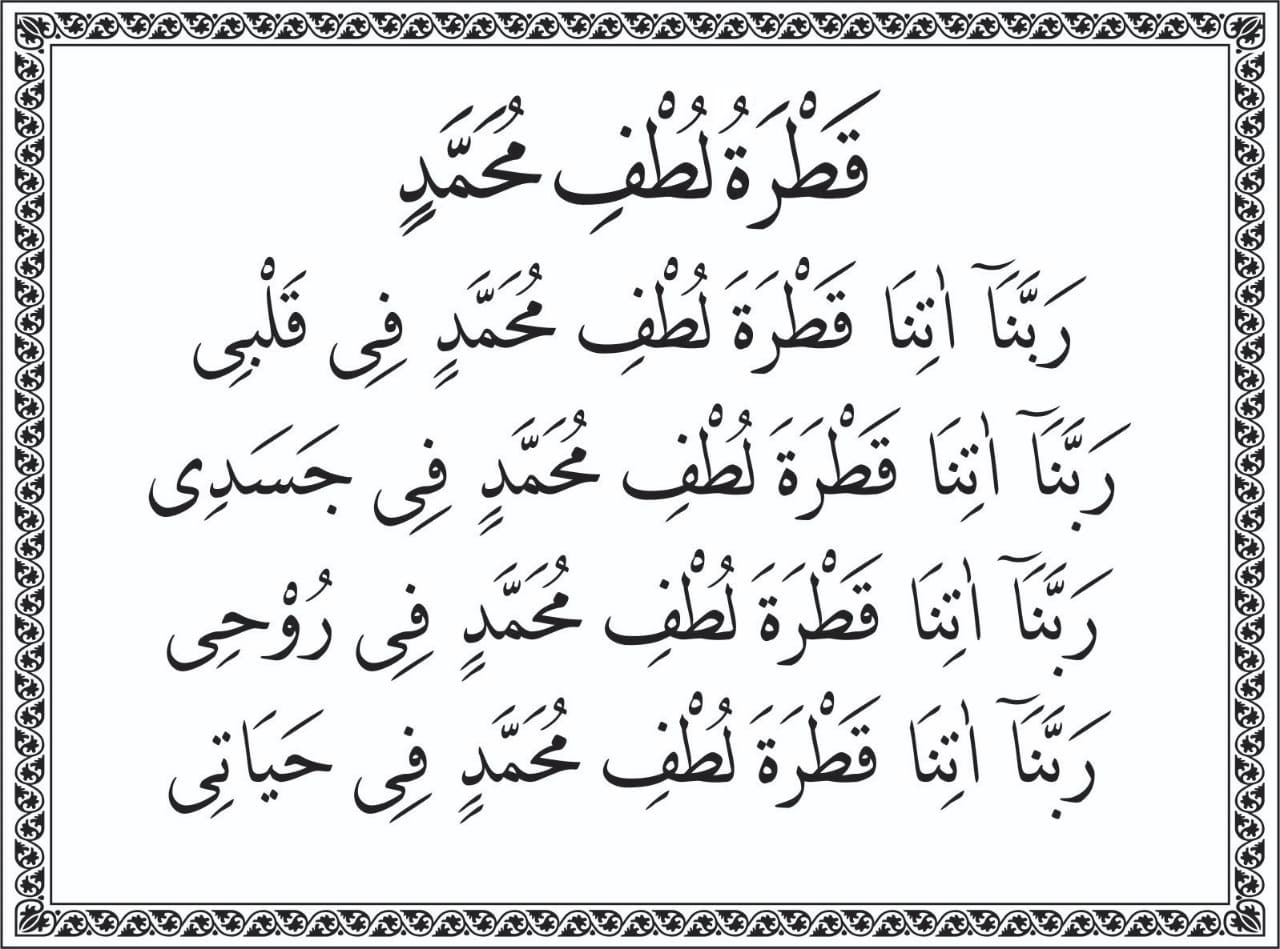 قَطْرَةُ لُطْفِ مُحَمَّدٍ
رَبَّنَآ اٰتِنَا قَطْرَةَ لُطْفِ مُحَمَّدٍ فِى قَلْبِى
رَبَّنَآ اٰتِنَا قَطْرَةَ لُطْفِ مُحَمَّدٍ فِى جَسَدِى
رَبَّنَآ اٰتِنَا قَطْرَةَ لُطْفِ مُحَمَّدٍ فِى رُوْحِى
رَبَّنَآ اٰتِنَا قَطْرَةَ لُطْفِ مُحَمَّدٍ فِى حَيَاتِى